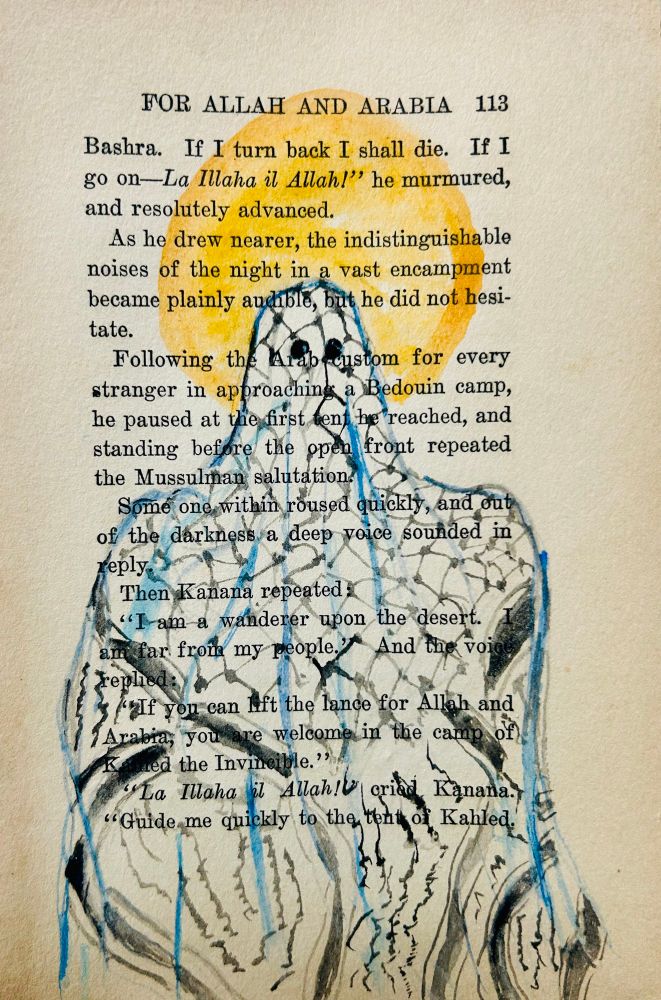 FOR ALLAH AND ARABIA 113
Bashra. If I turn back I shall die. If I
go on—La Illaha il Allah!” he murmured,
and resolutely advanced.
As he drew nearer, the indistinguishable
noises of the night in a vast encampment
became plainly audible, but he did not hesi-
tate.
Following the Arab custom for every
stranger in approaching a Bedouin camp,
he paused at the first tent he reached, and
standing before the open front repeated
the Mussulman salutation.
Some one within roused quickly, and out
of the darkness a deep voice sounded in
reply.
Then Kanana repeated:
“I am a wanderer upon the desert. I
am far from my people.” And the voice
replied:
“If you can lift the lance for Allah and
Arabia, you are welcome in the camp of
Kahled the Invincible.”
“La Illaha il Allah!” cried Kanana.
“Guide me quickly to the tent of Kahled.